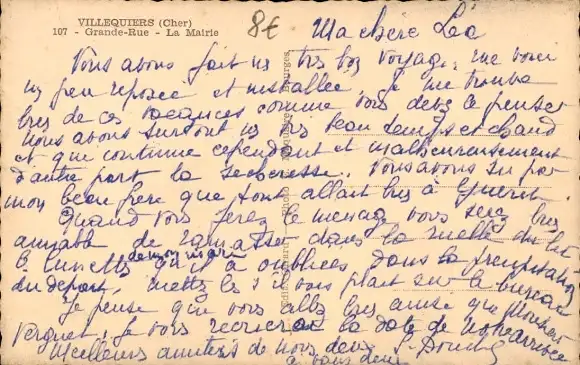 VILLEQUIERS (Cher)
107 - Grande-Rue - La Mairie
8€
Ma chère Léa
Nous avons fait un très bon voyage, me voici
un peu reposée et installée. Je me trouve
bien de ces vacances comme vous devez le penser
nous avons surtout un très beau temps et chaud
et qui continue cependant et malheureusement
d'autre part la sécheresse. Nous avons su par
mon beau frère que tout allait bien à Guerit
Quand vous ferez le ménage vous serez bien
aimable de ramasser dans la ruelle du lit
les lunettes de mon mari qu'il a oubliées dans la précipitation
du départ, mettez les s'il vous plait sur le bureau
Je pense que vous allez bien ainsi que Monsieur
Vergnet, je vous récrierai la date de notre arrivée
Meilleures amitiés de nous deux
à vous deux